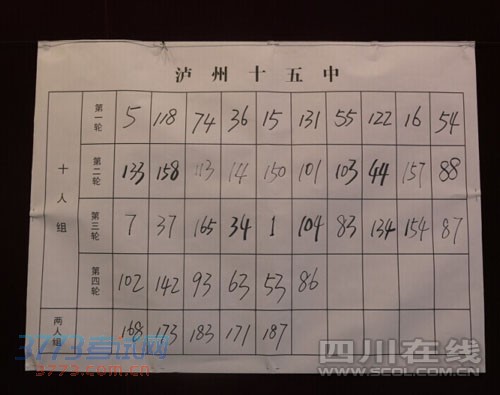 泸州十五中
十人组 第一轮 5 118 74 36 15 131 55 122 16 54
第二轮 133 158 113 14 150 101 103 44 157 88
第三轮 7 37 165 34 1 104 83 134 154 87
第四轮 102 142 93 63 53 86
两人组 168 173 183 171 187
3773考试网
3773.com.cn
四川在线
WWW.SCOL.COM.CN